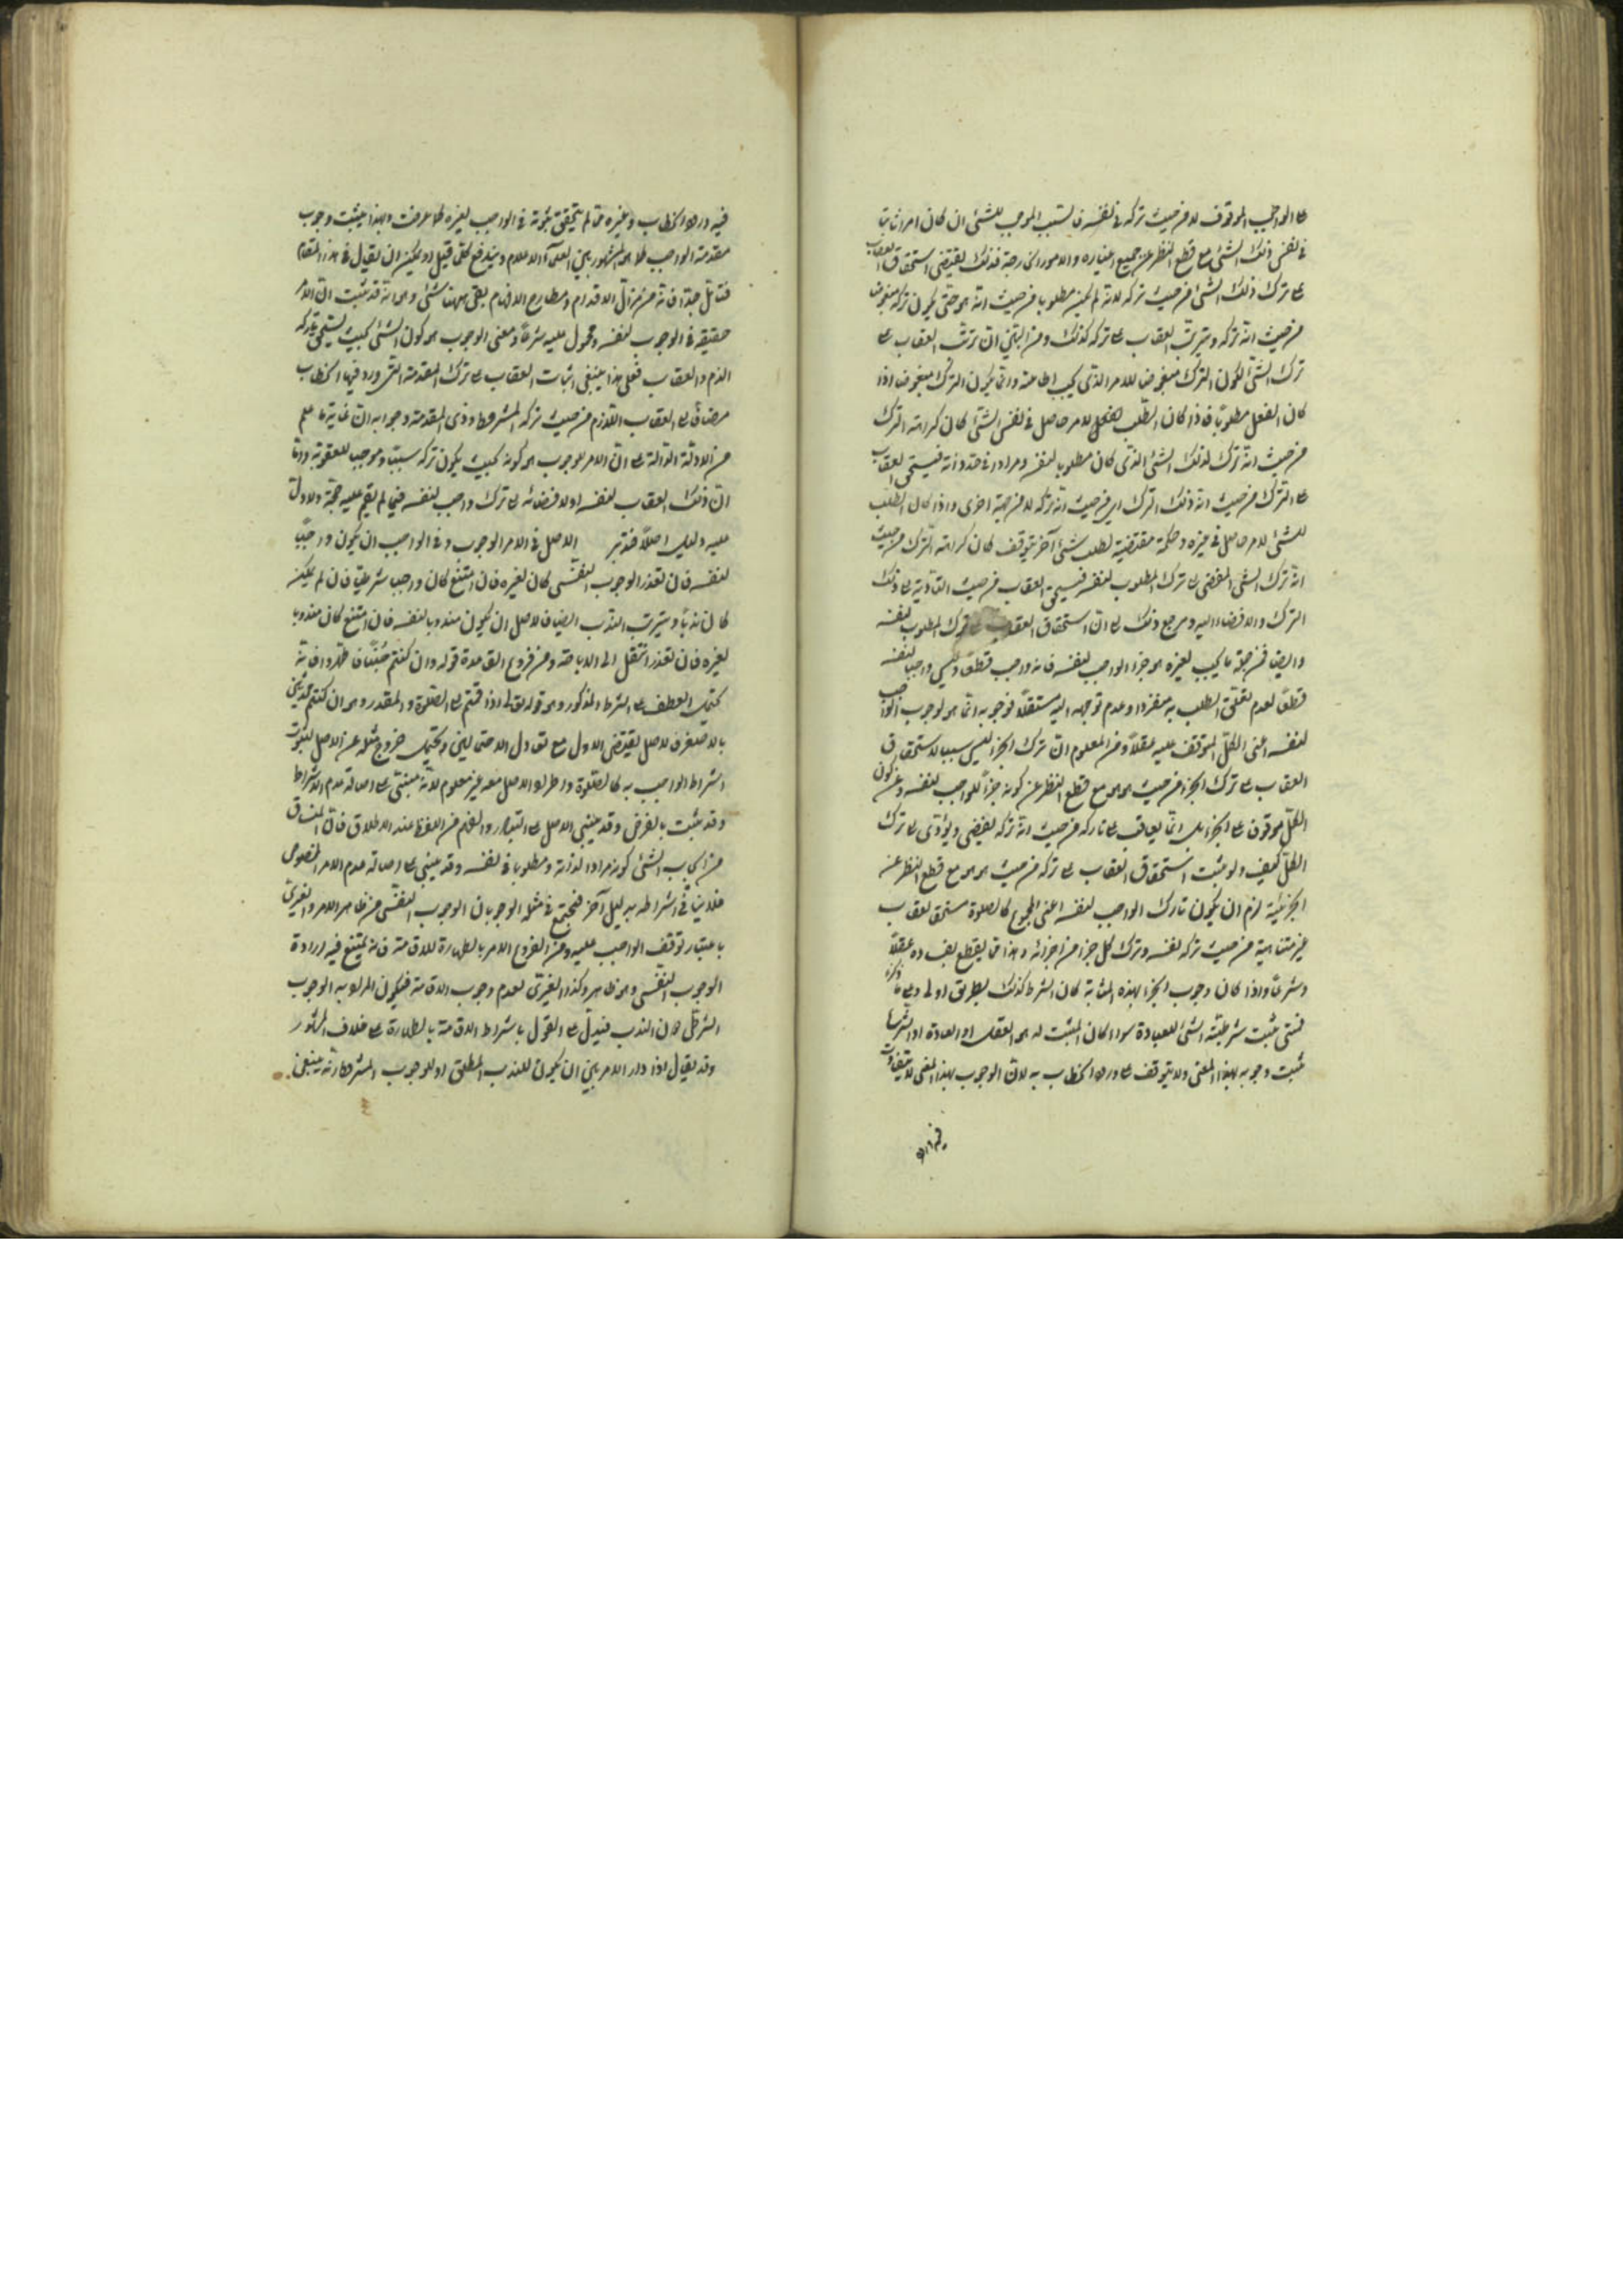 على الواجب الموقوف لا من حيث تركه في نفسه فالسبب الموجب للشئ ان كان امرا ثابتا
في نفس ذلك الشئ مع قطع النظر عن جميع اغياره والامور الخارجة فذلك يقتضي استحقاق العقاب
على ترك ذلك الشئ من حيث تركه لانه لم يكن مطلوبا من حيث انه هو حتى يكون تركه مبغوضا
من حيث انه تركه ويترتب العقاب على تركه كذلك ومن البيّن ان ترتّب العقاب على
ترك الشئ لكون الترك مبغوضا للامر الذي يجب اطاعته وانما يكون الترك مبغوضا اذا
كان الفعل مطلوبا فاذا كان الطلب لامر حاصل في نفس الشئ كان كراهته الترك
من حيث انه ترك لذلك الشئ الذي كان مطلوبا لنفسه ومرادا في حد ذاته فيستحق العقاب
على الترك من حيث انه ذلك الترك اي من حيث انه تركه لا من جهة اخرى واذا كان الطلب
للشئ لامر حاصل في غيره وحكمة مقتضية لطلب شئ آخر يتوقف كان كراهته الترك من حيث
انه ترك الشئ المفضي الى ترك المطلوب لنفسه فيستحق العقاب من حيث التأدية الى ذلك
الترك والافضاء اليه ومرجع ذلك الى ان استحقاق العقاب على ترك المطلوب لنفسه
وايضا فمن جملة ما يجب لغيره هو جزء الواجب لنفسه فانه واجب قطعا وليس واجبا لنفسه
قطعا لعدم تعلق الطلب به منفردا وعدم توجهه اليه مستقلا فوجوبه انما هو لوجوب الواجب
لنفسه اعنى الكل المتوقف عليه عقلا ومن المعلوم ان ترك الجزء ليس سببا لاستحقاق
العقاب على ترك الجزء من حيث هو هو مع قطع النظر عن كونه جزءا للواجب لنفسه وعن كون
الكل موقوفا على الجزء بل انما يعاقب على تاركه من حيث انه تركه يفضي ويؤدى الى ترك
الكل كيف ولو ثبت استحقاق العقاب على تركه من حيث هو هو مع قطع النظر عن
الجزئية لزم ان يكون تارك الواجب لنفسه اعنى المجموع كالصلوة مستحقا لعقاب
غير متناهية من حيث تركه لنفسه وترك كل جزء من اجزائه وهذا مما يقطع بفساده عقلا
وشرعا واذا كان وجوب الجزء بهذه المثابة كان الشرط كذلك بطريق اولى وعلى ما ذكرنا
فمتى ثبت شرطية الشئ للعبادة سواء كان المثبت له هو العقل او العادة او الشرع
ثبت وجوبه بهذا المعنى ولا يتوقف على ورود الخطاب به لان الوجوب بهذا المعنى لا يتفاوت
فيه ورود الخطاب وغيره مما لم يتحقق ثبوته في الواجب لغيره كما عرفت وبهذا يثبت وجوب
مقدمة الواجب كما هو المشهور بين العلماء الاعلام ويندفع كل ما قيل او يمكن ان يقال في هذا المقام
فتأمل جدا فانه من مزال الاقدام ومطارح الافهام بقى ههنا شئ وهو انه قد ثبت ان الامر
حقيقة في الوجوب لنفسه ومحمول عليه شرعا ومعنى الوجوب هو كون الشئ بحيث يستحق تاركه
الذم والعقاب فعلى هذا ينبغى اثبات العقاب على ترك المقدمة التى ورد فيها الخطاب
مضافا الى العقاب اللازم من حيث تركه المشروط وذى المقدمة وجوابه ان غاية ما علم
من الادلة الدالة على ان الامر للوجوب هو كونه بحيث يكون تركه سببا وموجبا للعقوبة واما
ان ذلك العقاب لنفسه او لافضائه الى ترك واجب لنفسه فمما لم يقم عليه حجة ولا دل
عليه دليل اصلا فتدبر الاصل في الامر الوجوب وفي الواجب ان يكون واجبا
لنفسه فان تعذر الوجوب النفسى كان لغيره فان امتنع كان واجبا شرطيا فان لم يمكن
كان ندبا ويترتب الندب ايضا فالاصل ان يكون مندوبا لنفسه فان امتنع كان مندوبا
لغيره فان تعذر انتقل الى الاباحة ومن فروع القاعدة قوله وان كنتم جنبا فاطهروا فانه
يحتمل العطف على الشرط المذكور وهو قوله تعالى اذا قمتم الى الصلوة والمقدر وهو ان كنتم محدثين
بالاصغر فالاصل يقتضى الاول مع تعادل الاحتمالين ويحتمل خروج مثله عن الاصل لثبوت
اشتراط الواجب به كالصلوة واطراد الاصل معه غير معلوم لانه مبتنى على اصالة عدم الاشتراط
وقد ثبت بالفرض وقد يبنى الاصل على التبادر والفهم من اللفظ عند الاطلاق فان المنساق
من ايجاب الشئ كونه مرادا لذاته ومطلوبا في نفسه وقد يبنى على اصالة عدم الامر المخصوص
فلا ينافى اشتراطه بدليل آخر فيجتمع في مثله الوجوبان الوجوب النفسى من ظاهر الامر والغيرى
باعتبار توقف الواجب عليه ومن الفروع الامر بالطهارة للاقامة فانه يمتنع فيه ارادة
الوجوب النفسى وهو ظاهر وكذا الغيرى لعدم وجوب الاقامة فيكون المراد به الوجوب
الشرطى او الندب فيدل على القول باشتراط الاقامة بالطهارة على خلاف المشهور
وقد يقال اذا دار الامر بين ان يكون للندب المطلق او للوجوب المشروط فانه ينبغى